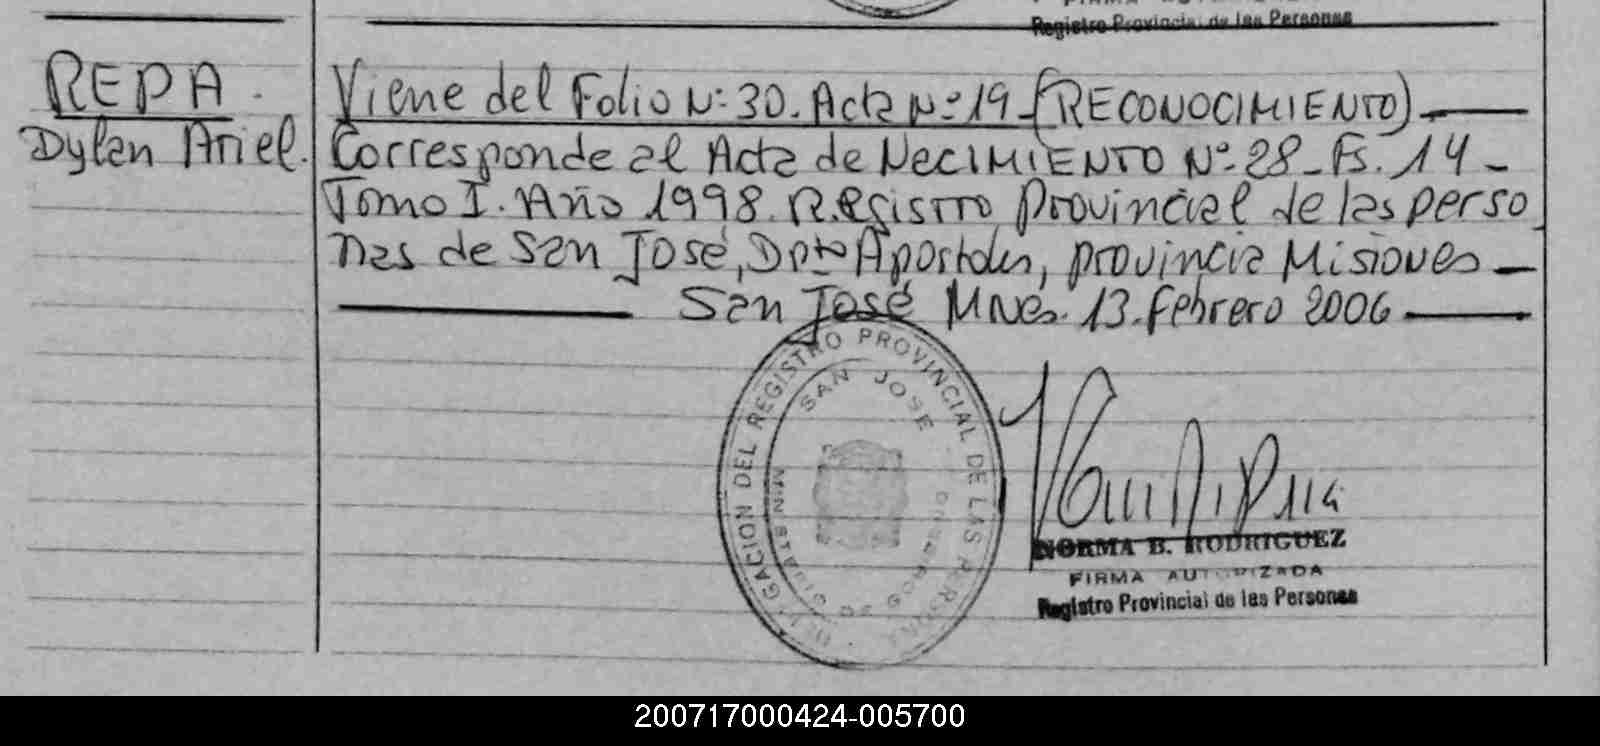 Registro Provincial de las Personas
REPA.
Dylan Ariel.
Viene del Folio Nº: 30. Acta Nº 19-(RECONOCIMIENTO)
Corresponde al Acta de NaCIMIENTO Nº 28-Fs. 14-
Tomo I. Año 1998. Registro provincial de las perso
nas de San José, Dpto Apostoles, provincia Misiones
San José Mnes. 13. febrero 2006
GACION DEL REGISTRO PROVINCIAL DE LAS PERSONA
SAN JOSE
NORMA B. RODRIGUEZ
FIRMA AUTORIZADA
Registro Provincial de las Personas
200717000424-005700